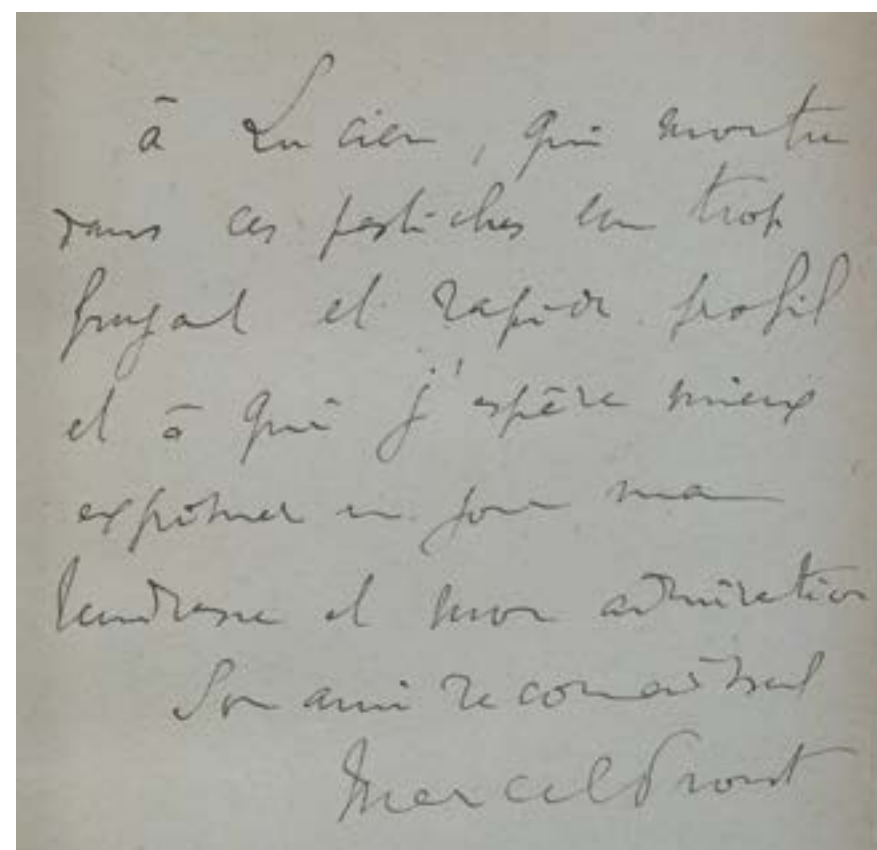 à Lucien, qui montre
dans ces pastiches un trop
frugal et rapide profil
et à qui j'espère mieux
exprimer un jour ma
tendresse et mon admiration
Son ami reconnaissant
Marcel Proust